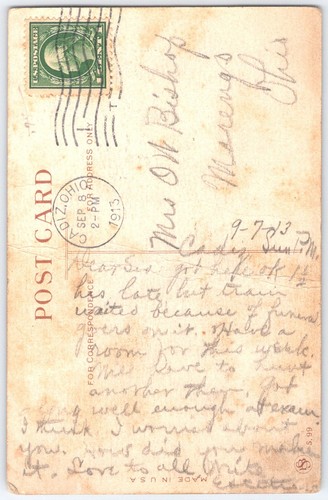 U.S. POSTAGE
1 CENT 1
CADIZ, OHIO
SEP 8
2-PM
1913
POST CARD
FOR ADDRESS ONLY
FOR CORRESPONDENCE
Mrs O W Bishop
Marengo
Ohio
9-7-13
Cadiz Sun P.M.
Dear got here ok
hrs late but train
waited because of funeral
goers on it. Have a
room for this week.
Will have to hunt
another then. Got
along well enough at exam
I think. I worried about
you. How did you make
it. Love to all Write
MADE IN U.S.A.